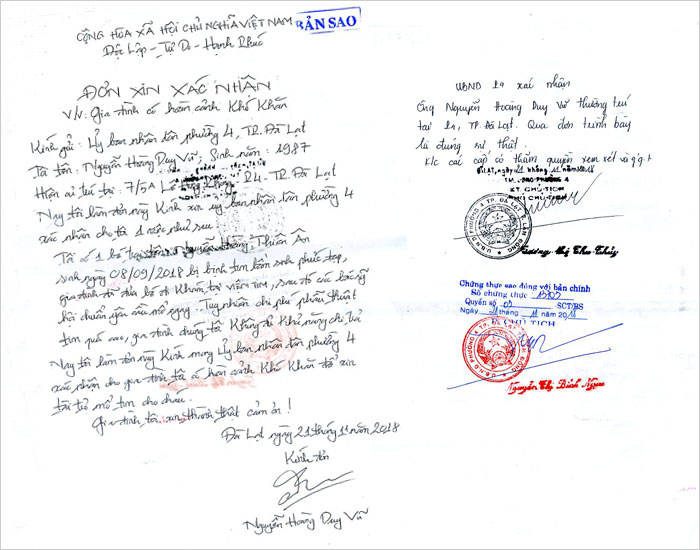 CỘNG HÒA XÃ HỘI CHỦ NGHĨA VIỆT NAM
BẢN SAO
Độc Lập - Tự Do - Hạnh Phúc
ĐƠN XIN XÁC NHẬN
V/v: Gia đình có hoàn cảnh Khó Khăn
Kính gửi: Ủy ban nhân dân phường 4, TP. Đà Lạt
Tôi tên: Nguyễn Hoàng Duy Vũ; Sinh năm: 1987
Hiện cư trú tại: 7/5A Lê P4. TP. Đà Lạt
Nay tôi làm đơn này Kính xin ủy ban nhân dân phường 4
xác nhận cho tôi 1 việc như sau
Tôi có 1 bé Thiên Ân
sinh ngày 08/09/2018 bị bệnh tim bẩm sinh phức tạp,
gia đình tôi đưa bé đi Khám tại viện tim, sau đó các bác sỹ
hội chuẩn yêu cầu mổ ngay. Tuy nhiên chi phí phẫu thuật
tim quá cao, gia đình chúng tôi Không đủ Khả năng chi trả
Nay tôi làm đơn này Kính mong Ủy ban nhân dân phường 4
xác nhận cho gia đình tôi có hoàn cảnh Khó Khăn để xin
tài trợ mổ tim cho cháu.
Gia đình tôi xin thành thật cảm ơn!
Đà Lạt ngày 21 tháng 11 năm 2018
Kính đơn
Nguyễn Hoàng Duy Vũ
UBND P4 xác nhận
Ông Nguyễn Hoàng Duy Vũ thường trú
tại P4, TP. Đà Lạt. Qua đơn trình bày
là đúng sự thật
K/c các cấp có thẩm quyền xem xét và g.q.t
ĐÀ LẠT, ngày 21 tháng 11 năm 2018
TM. UBND PHƯỜNG 4
KT. CHỦ TỊCH
PHÓ CHỦ TỊCH
U.B.N.D PHƯỜNG 4 T.P. ĐÀ LẠT T. LÂM ĐỒNG
Trương Thị Thu Thủy
Chứng thực sao đúng với bản chính
Số chứng thực
Quyển số 03 SCT/BS
Ngày 21 tháng 11 năm 2018
CHỦ TỊCH
U.B.N.D PHƯỜNG 4 T.P. ĐÀ LẠT T. LÂM ĐỒNG
Nguyễn Thị Bích Ngọc